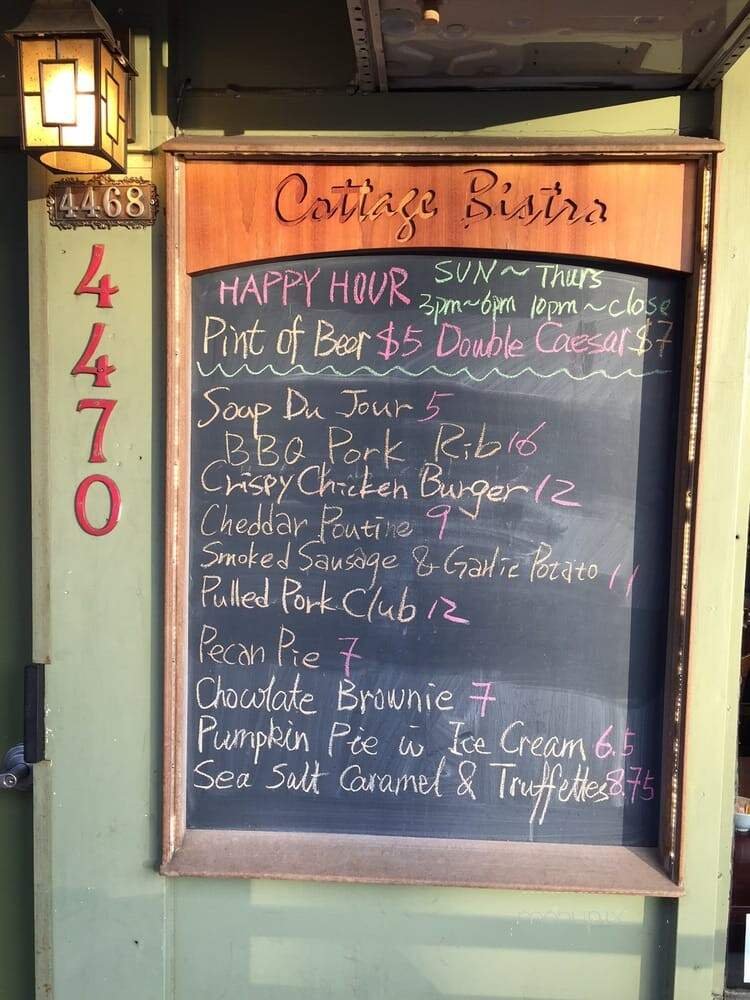 4468
4470
Cottage Bistro
HAPPY HOUR SUN ~ Thurs
3pm~6pm 10pm ~ close
Pint of Beer $5 Double Caesar $7
Soap Du Jour 5
BBQ Pork Rib 16
Crispy Chicken Burger 12
Cheddar Poutine 9
Smoked Sausage & Garlic Potato 11
Pulled Pork Club 12
Pecan Pie 7
Chocolate Brownie 7
Pumpkin Pie w Ice Cream 6.5
Sea Salt Caramel & Truffettes 8.75